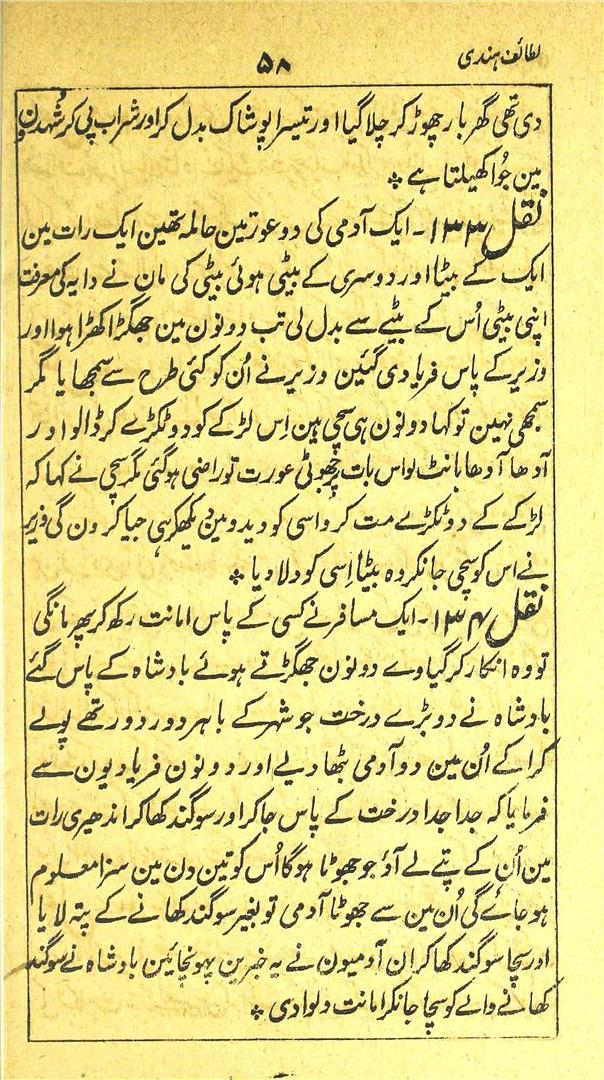 لطائف ہندی
۵۸
دی تھی گھر بار چھوڑ کر چلا گیا اور تیسرا پوشاک بدل کر اور شراب پی کر شُہدون
مین جُوا کھیلتا ہے *
نقل ۱۳۳ - ایک آدمی کی دو عورتین حاملہ تھین ایک رات مین
ایک کے بیٹا اور دوسری کے بیٹی ہوئی بیٹی کی مان نے دایہ کی معرفت
اپنی بیٹی اُس کے بیٹے سے بدل لی تب دونون مین جھگڑا کھڑا ہوا اور
وزیر کے پاس فریادی گئین وزیر نے اُن کو کئی طرح سے سمجھایا مگر
سمجھی نہین تو کہا دونون ہی سچی ہین اِس لڑکے کو دو ٹکڑے کر ڈالو اور
آدھا آدھا بانٹ لو اس بات پر جھوٹی عورت تو راضی ہو گئی مگر سچی نے کہا کہ
لڑکے کے دو ٹکڑے مت کرو اسی کو دیدو مین دیکھ کر ہی جیا کرون گی وزیر
نے اس کو سچی جانکر وہ بیٹا اِسی کو دلا دیا *
نقل ۱۳۴ - ایک مسافر نے کسی کے پاس امانت رکھ کر پھر مانگی
تو وہ انکار کر گیا وے دونون جھگڑتے ہوئے بادشاہ کے پاس گئے
بادشاہ نے دو بڑے درخت جو شہر کے باہر دور دور تھے پولے
کرا کے اُن مین دو آدمی بٹھا دیے اور دونون فریادیون سے
فرمایا کہ جدا جدا درخت کے پاس جا کر اور سوگند کھا کر اندھیری رات
مین اُن کے پتے لے آؤ جو جھوٹا ہو گا اُس کو تین دن مین سزا معلوم
ہو جائے گی اُن مین سے جھوٹا آدمی تو بغیر سوگند کھانے کے پتہ لایا
اور سچا سوگند کھا کر ان آدمیون نے یہ خبرین پہونچائین بادشاہ نے سوگند
کھانے والے کو سچا جانکر امانت دلوا دی *